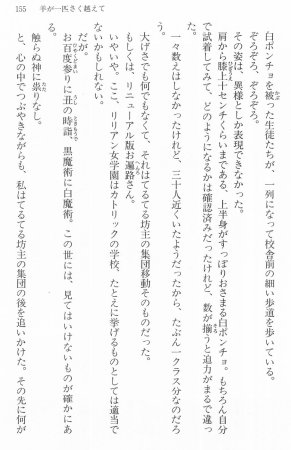 155 羊が一匹さく越えて
白ポンチョを被った生徒たちが、一列になって校舎前の細い歩道を歩いている。
ぞろぞろ、ぞろぞろ。
その姿は、異様としか表現できなかった。
肩から膝上十センチくらいまである、上半身がすっぽりおさまる白ポンチョ。もちろん自分
で試着してみて、どのようになるかは確認済みだったけれど、数が揃うと迫力がまるで違っ
た。
一々数えはしなかったけれど、三十人近くいたようだったから、たぶん一クラス分なのだろ
う。
大げさでも何でもなくて、それはてるてる坊主の集団移動そのものだった。
もしくは、リニューアル版お遍路さん。
いやいや。ここ、リリアン女学園はカトリックの学校、たとえに挙げるものとしては適当で
ないかもしれない。
だが。
お百度参りに丑の時詣、黒魔術に白魔術。この世には、見てはいけないものが確かにあ
る。
触らぬ神に祟りなし。
と、心の中でつぶやきながらも、私はてるてる坊主の集団の後を追いかけた。その先に何が